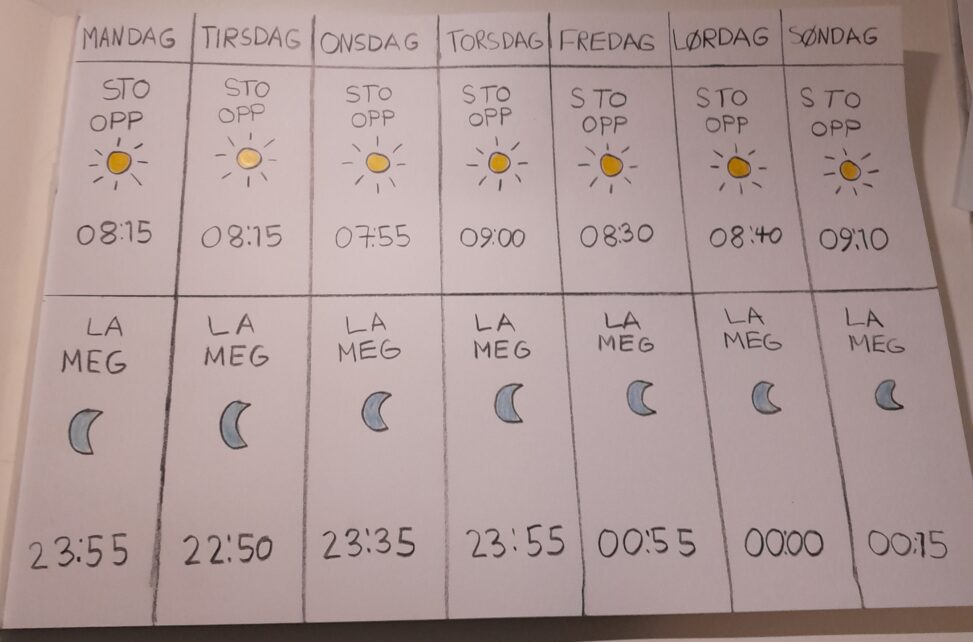 MANDAG TIRSDAG ONSDAG TORSDAG FREDAG LØRDAG SØNDAG
STO STO STO STO STO STO STO
OPP OPP OPP OPP OPP OPP OPP
08:15 08:15 07:55 09:00 08:30 08:40 09:10
LA LA LA LA LA LA LA
MEG MEG MEG MEG MEG MEG MEG
23:55 22:50 23:35 23:55 00:55 00:00 00:15